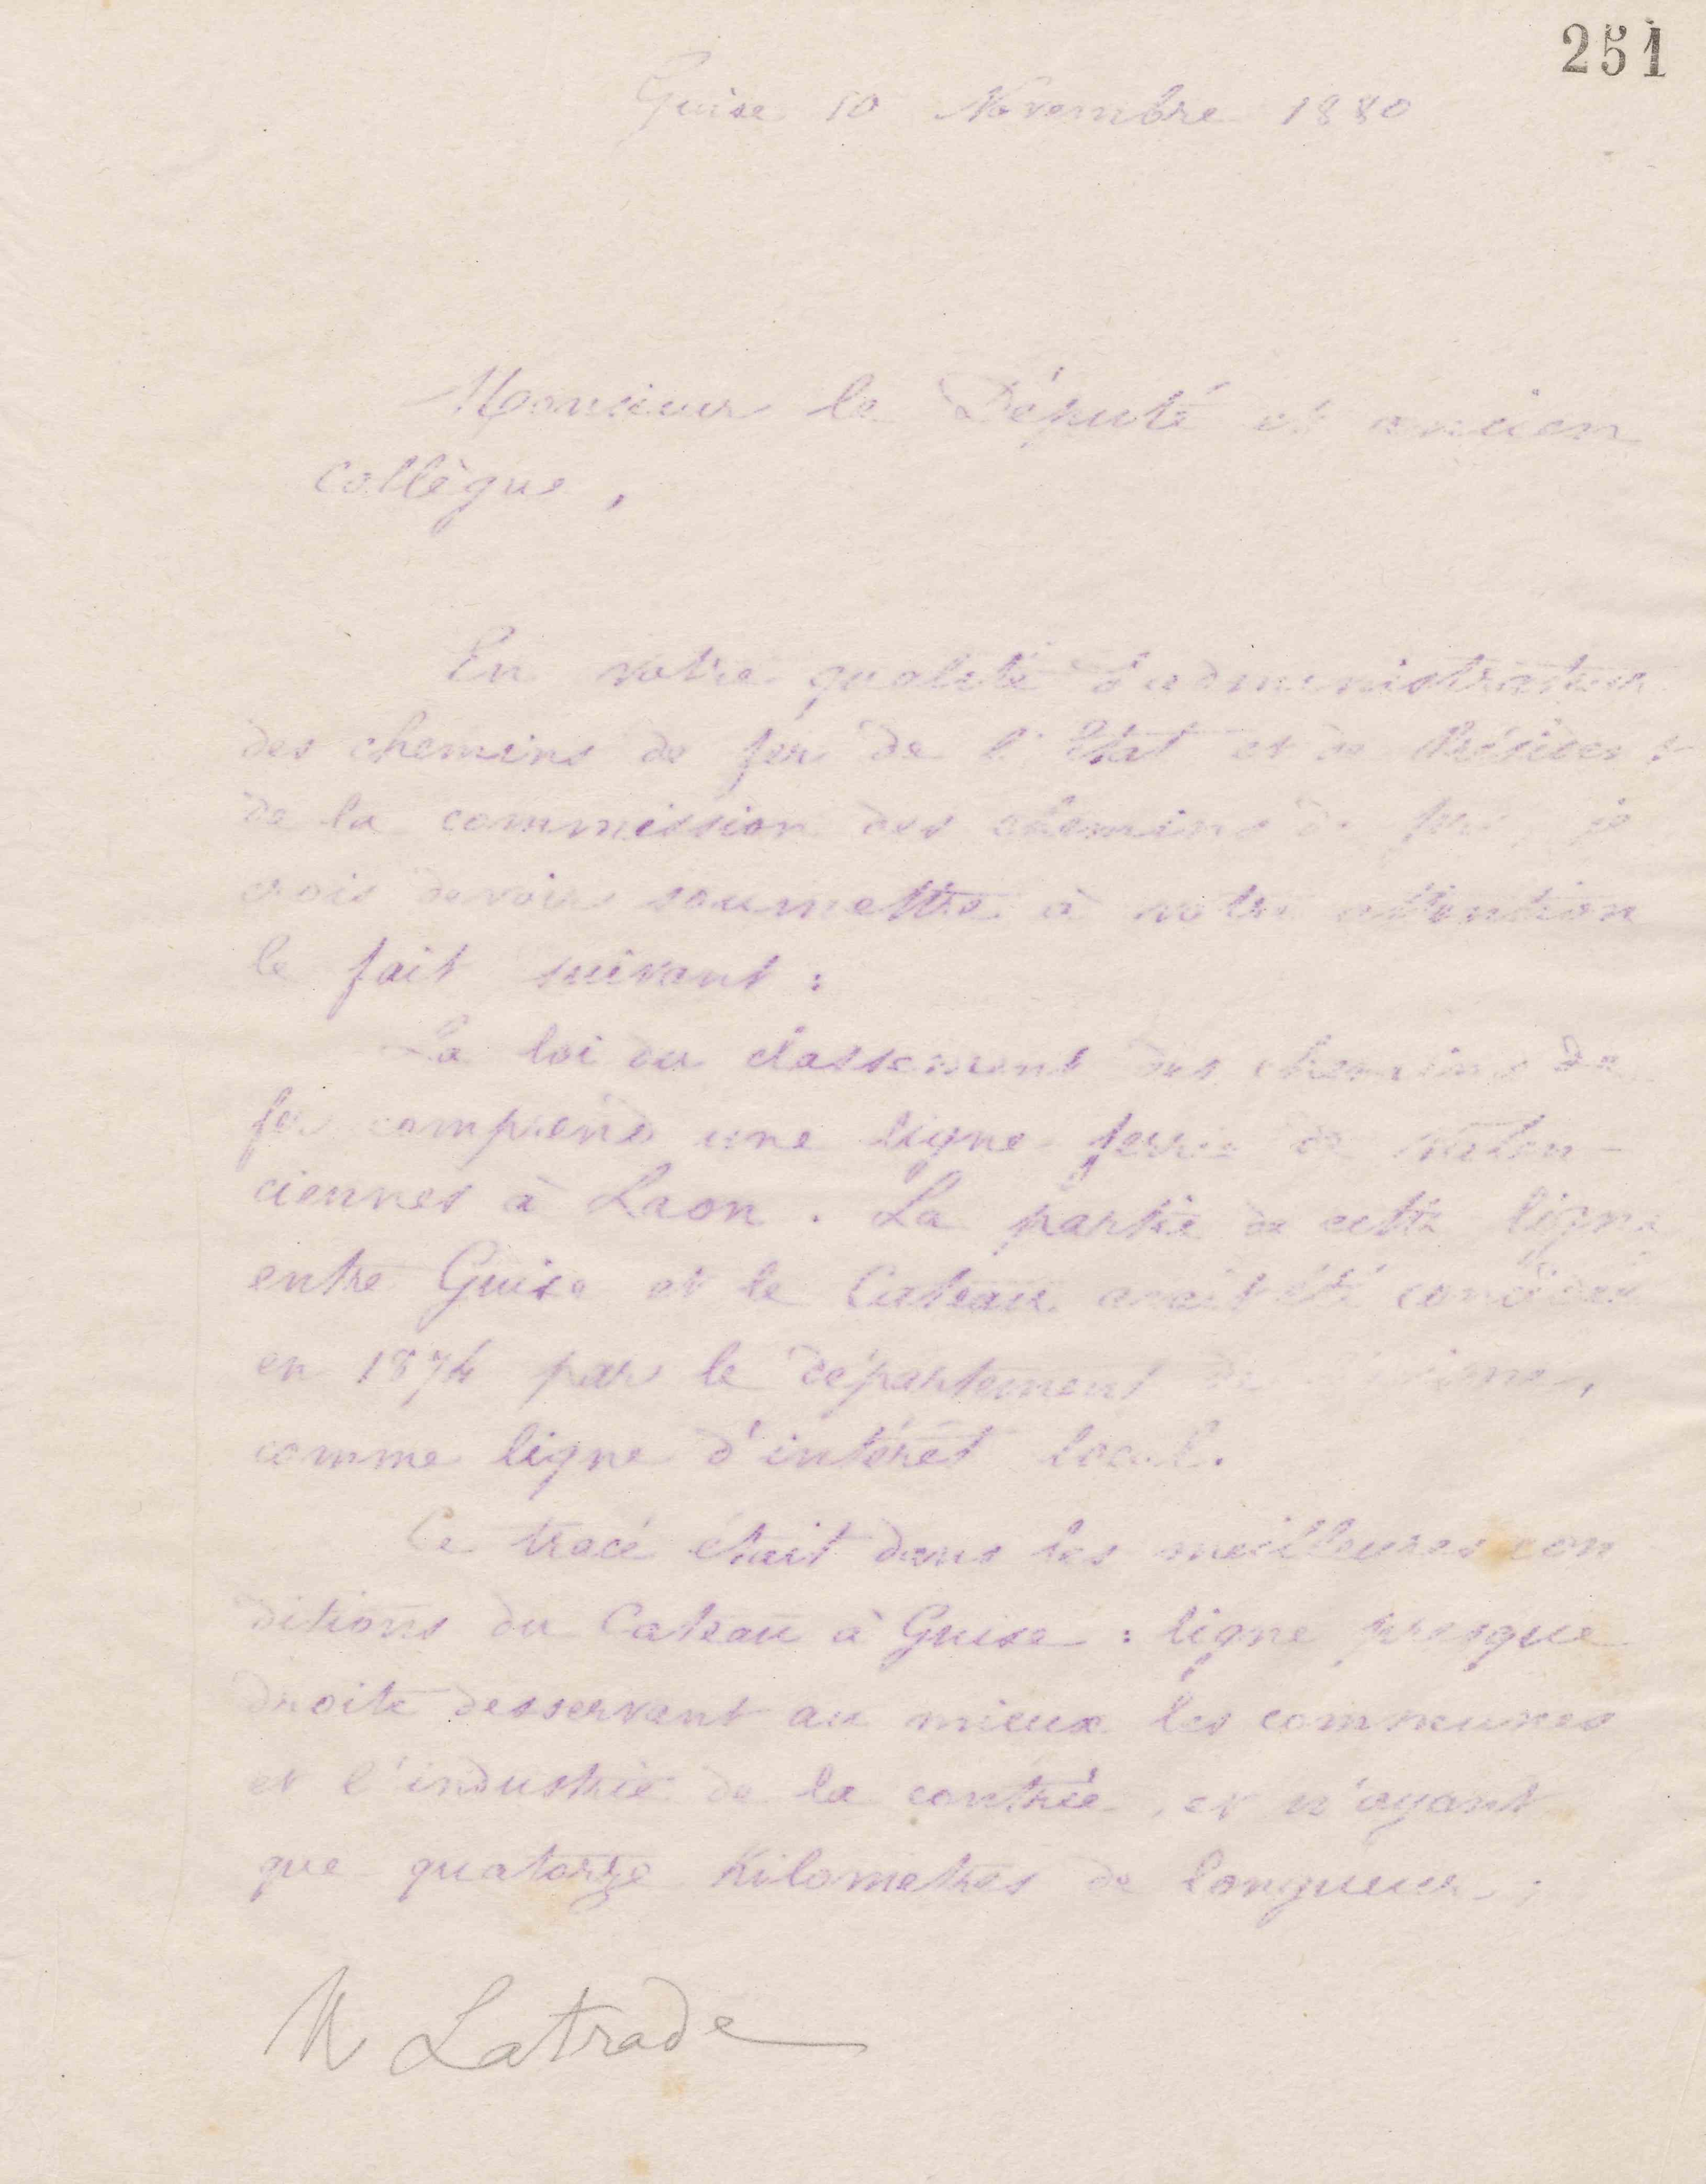 251
Guise 10 Novembre 1880
Monsieur le Député et ancien
collègue,
En votre qualité d'administrateur
des chemins de fer de l'Etat et de Président
de la commission des chemins de fer, je
crois devoir soumettre à votre attention
le fait suivant :
La loi du classement des chemins de
fer comprend une ligne ferrée de Valen-
ciennes à Laon. La partie de cette ligne
entre Guise et le Cateau avait été
en 1874 par le département de l'Aisne,
comme ligne d'intérêt local.
Ce tracé était dans les meilleures con
ditions du Cateau à Guise : ligne presque
droite desservant au mieux les communes
et l'industrie de la contrée, et n'ayant
que quatorze Kilometres de longueur ;
M Latrade